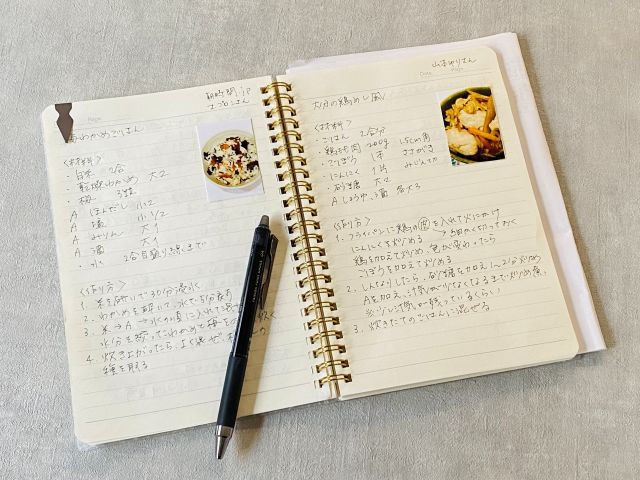 梅わかめごはん
〈材料〉
・白米 2合
・乾燥わかめ 大2
・梅
A ほんだし 小2
A 塩 小1/2
A みりん 大1
A 酒 大1
・水 2合目盛り線まで
〈作り方〉
1. 米を研いで30分浸水
2. わかめを
3. 米→A→水の順に入れて
水分を
4. 炊き上がったら、よく混ぜ
種を取る
Date Page
大分の鶏めし風
〈材料〉
・ごはん 2合分
・鶏もも肉 200g 1.5cm角
・ごぼう 1本 ささがき
・にんにく 1片 みじん切り
・砂糖 大2
A しょうゆ、酒 各大3
〈作り方〉
1. フライパンに鶏の皮を入れて火にかけ
→細かく切っておく
にんにくを炒める
鶏を加えて炒め、色が変わったら
ごぼうを加えて炒める
2. しんなりしたら、砂糖を加え1〜2分炒め
Aを加え、汁気がなくなるまで炒め煮
※少し汁気が残っているくらい
3. 炊きたてのごはんに混ぜる